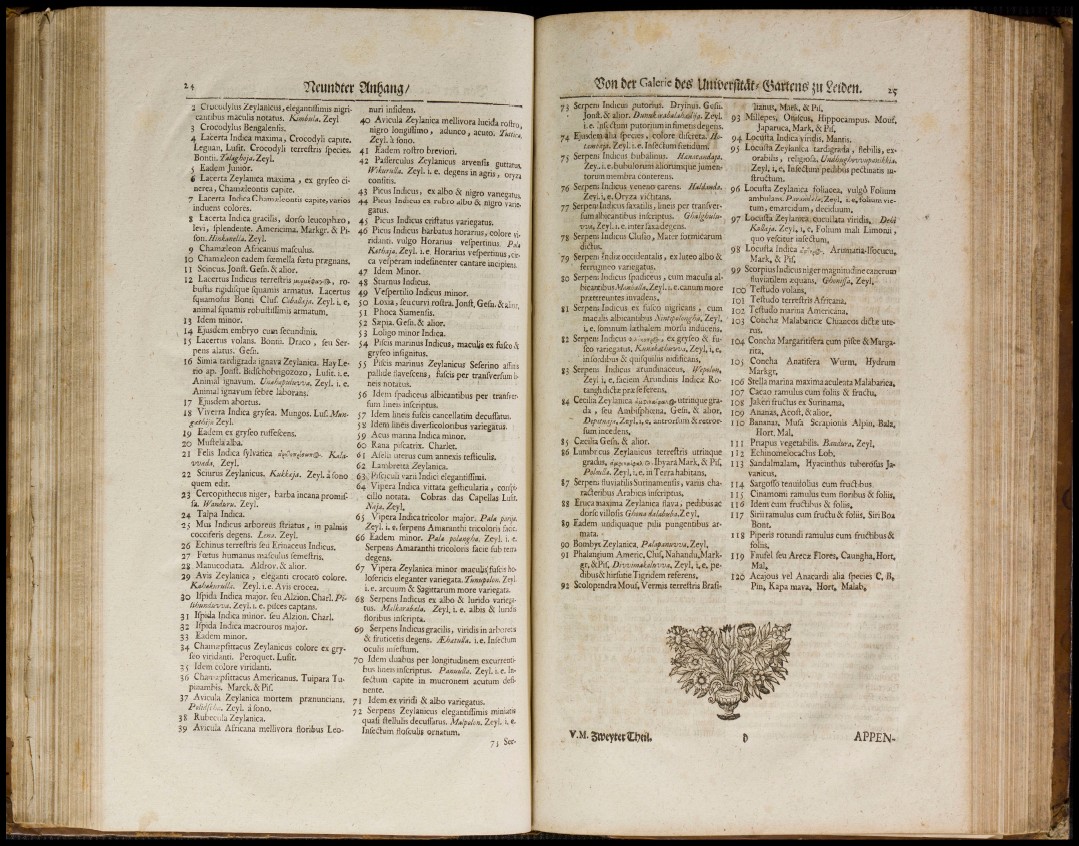 24 Neundter Anhang/
2 Crocodylus Zeylanicus, elegantissimis nigri-
cantibus maculis notatus. Kimbula. Zeyl
3 Crocodylus Bengalensis.
4 Lacerta Indica maxima, Crocodyli capite.
Leguan, Lusit. Crocodyli terrestris species.
Bontii. Talaghoja. Zeyl.
5 Eadem Junior.
6 Lacerta Zeylanica maxima, ex gryseo ci-
nerea, Chamæleontis capite.
7 Lacerta Indica Chamæleontis capite, varios
induens colores.
8 Lacerta Indica gracilis, dorso leucophæo,
levi, splendente. Americima. Markgr. & Pi-
son. Hinkanella. Zeyl.
9 Chamæleon Africanus masculus.
10 Chamæleon eadem fœmella fœtu prægnans.
11 Scincus. Jonst. Gesn. & alior.
12 Lacertus Indicus terrestris ro-
bustis rigidisque squamis armatus. Lacertus
squamosus Bonti Clus. Caballaja. Zeyl. i. e.
animal squamis robustissimis armatum.
13 Idem minor.
14 Ejusdem embryo cum secundinis.
15 Lacertus volans. Bontii. Draco, seu Ser-
pens alatus. Gesn.
16 Simia tardigrada ignava Zeylanica. Hay Le-
rio ap. Jonst. Bidschobrigozozo, Lusit. i. e.
Animal ignavum. Zeyl. i. e.
Animal ignavum febre laborans.
17 Ejusdem abortus.
18 Viverra Indica grysea. Mungos. Lus. Mun-
gathia Zeyl.
19 Eadem ex gryseo ruffescens.
20 Mustela alba.
21 Felis Indica sylvatica Kala-
wada, Zeyl.
22 Sciurus Zeylanicus. Kukkaja. Zeyl. à sono
quem edit.
23 Cercopithecus niger, barba incana promis-
sa. Wanduru. Zeyl.
24 Talpa Indica.
25 Mus Indicus arboreus striatus, in palmis
cocciferis degens. Lena. Zeyl.
26 Echinus terrestris seu Erinaceus Indicus.
27 Fœtus humanus masculus semestris.
28 Manucodiata. Aldrov. & alior.
29 Avis Zeylanica, eleganti crocato colore.
Kahakurulla. Zeyl. i.e. Avis crocea.
30 Ispida Indica major. seu Alzion. Charl. Pi-
lihuduwa. Zeyl. i. e. pisces captans.
31 Ispida Indica minor. seu Alzion. Charl.
32 Ispida Indica macrouros major.
33 Eadem minor.
34 Chamæpsittacus Zeylanicus colore ex gry-
seo viridanti. Peroquet. Lusit.
35 Idem colore viridanti.
36 Chamæpsittacus Americanus. Tuipara Tu-
pinambis. Marck. & Pis.
37 Avicula Zeylanica mortem prænuncians.
Zeyl. à sono.
38 Rubecula Zeylanica.
39 Avicula Africana mellivora floribus Leo-
nuri insidens.
40 Avicula Zeylanica mellivora lucida rostro,
nigro longissimo, adunco, acuto. Tuttica.
Zeyl. à sono.
41 Eadem rostro breviori.
42 Passerculus Zeylanicus arvensis guttatus,
Wikurulla. Zeyl. i. e. degens in agris, oryza
consitis.
43 Picus Indicus, ex albo & nigro variegatus.
44 Picus Indicus ex rubro albo & nigro varie-
gatus.
45 Picus Indicus cristatus variegatus.
46 Picus Indicus barbatus horarius, colore vi-
ridanti, vulgo Horarius vespertinus. Pala
Kathaja. Zeyl. i.e. Horarius vespertinus, cir-
ca vesperam indesinenter cantare incipiens.
47 Idem Minor.
48 Sturnus Indicus.
49 Vespertilio Indicus minor.
50 Loxia, seu curvi rostra. Jonst, Gesn. & alior.
51 Phoca Siamensis.
52 Sæpia. Gesn. & alior.
53 Loligo minor Indica.
54 Piscis marinus Indicus, maculis ex fusco &
gryseo insignitus.
55 Piscis marinus Zeylanicus Seserino affinis
pallide flavescens, fuscis per transversum li-
neis notatus.
56 Idem spadiceus albicantibus per transver-
sum lineis inscriptus.
57 Idem lineis fuscis cancellatim decussatus.
58 Idem lineis diversicoloribus variegatus.
59 Acus marina Indica minor.
60 Rana piscatrix. Charlet.
61 Aselii uterus cum annexis testiculis.
62 Lambretta Zeylanica.
63 Pisciculi varii Indici elegantissimi.
64 Vipera Indica vittata gesticularia, conspi-
cillo notata. Cobras das Capellas Lusit.
Naja. Zeyl.
65 Vipera Indica tricolor major. Pala parija.
Zeyl. i. e. serpens Amaranthi tricoloris facie.
66 Eadem minor. Pala polangha. Zeyl. i. e.
Serpens Amaranthi tricoloris facie sub terra
degens.
67 Vipera Zeylanica minor maculis fuscis ho-
losericis eleganter variegata. Tunupolon. Zeyl.
i. e. arcuum & Sagittarum more variegata.
68 Serpens Indicus ex albo & lurido variega-
tus. Malkarahala. Zeyl, i. e. albis & luridis
floribus inscripta.
69 Serpens Indicus gracilis, viridis in arboreis
& fruticetis degens. Æhatulla. i.e. Insectum
oculis infestum.
70 Idem duabus per longitudinem excurrenti-
bus lineis inscriptus. Panuulla. Zeyl. i. e. In-
sectum capite in mucronem acutum desi-
nente.
71 Idem ex viridi & albo variegatus.
72 Serpens Zeylanicus elegantissimis miniatis
quasi stellulis decussatus. Malpolon. Zeyl. i. e.
Insectum flosculis ornatum.
73 Ser-
Von der Galerie des Universität-Gartens zu Leiden. 25
73 Serpens Indicus putorius. Dryinus. Gesn.
Jonst. & alior. Zeyl.
i.e. Insectum putorium in fimetis degens.
74 Ejusdem alia species, colore distincta.
Zeyl. i. e. Insectum fœtidum.
75 Serpens Indicus bubalinus. Hanaraudaja.
Zey. i. e. bubulorum aliorumque jumen-
torum membra conterens.
76 Serpens Indicus veneno carens. Haldanda.
Zeyl. i. e. Oryza victitans.
77 Serpens Indicus saxatilis, lineis per transver-
sum albicantibus inscriptus. Ghalghulu-
wa, Zeyl. i. e. inter saxa degens.
78 Serpens Indicus Clusio, Mater formicarum
dictus.
79 Serpens Indiæ occidentalis, ex luteo albo &
ferrugineo variegatus.
80 Serpens Indicus spadiceus, cum maculis al-
bicantibus Zeyl. i. e. canum more
prætereuntes invadens.
81 Serpens Indicus ex fusco nigricans, cum
maculis albicantibus Nintipolongha, Zeyl,
i. e. somnum lathalem morsu inducens.
82 Serpens Indicus ex gryseo & fu-
sco variegatus. Zeyl, i, e,
in sordibus & quisquiliis nidificans.
83 Serpens Indicus arundinaceus, Wepolon,
Zeyl i, e, faciem Arundinis Indicæ Ro-
tangh dictæ præ se ferens.
84 Cæcilia Zeylanica utrinque gra-
da, seu Ambisphœna, Gesn, & alior,
Depatnaja, Zeyl, i, e, antrorsum & retror-
sum incedens,
85 Cæcilia Gesn, & alior.
86 Lumbricus Zeylanicus terrestris utrinque
gradus, Ibyará Mark, & Pis,
Zeyl, i, e, in Terra habitans,
87 Serpens fluviatilis Surinamensis, variis cha-
racteribus Arabicis inscriptus,
88 Eruca maxima Zeylanica flava, pedibus ac
dorso villosis Ghona dalabuha. Zeyl,
89 Eadem undiquaque pilis pungentibus ar-
mata.
90 Bombyx Zeylanica, Palapanuwa, Zeyl,
91 Phalangium Americ, Clus, Nahandu, Mark-
gr, & Pis, Divvimakaluvva, Zeyl, i, e, pe-
dibus & hirsutie Tigridem referens,
92 Scolopendra Mous, Vermis terrestris Brasi-
lianus, Mark, & Pis,
93 Millepes, Oniscus, Hippocampus. Mous,
Japaruca, Mark, & Pis,
94 Locusta Indica viridis, Mantis.
95 Locusta Zeylanica tardigrada, flebilis, ex-
orabilis, religiosa,
Zeyl, i, e, Insectum pedibus pectinatis in-
structum.
96 Locusta Zeylanica foliacea, vulgò Folium
ambulans. Zeyl, i. e, folium vie-
tum, emarcidum, deciduum.
97 Locusta Zeylanica cucullata viridis, Dehi
Kollaja. Zeyl, i, e, Folium mali Limonii,
quo vescitur insectum,
98 Locusta Indica Arumatia-Isocucu,
Mark, & Pis,
99 Scorpius Indicus niger magnitudine cancrum
fluviatilem æquans, Ghonissa, Zeyl,
100 Testudo volans,
101 Testudo terrestris Africana.
102 Testudo marina Americana,
103 Concha Malabaricæ Chiancos dictæ ute-
rus.
104 Concha Margaritifera cum pisce & Marga-
rita,
105 Concha Anatifera Wurm, Hydrum
Markgr,
106 Stella marina maxima aculeata Malabarica,
107 Cacao ramulus cum foliis & fructu,
108 Jakeri fructus ex Surinama,
109 Ananas, Acost, & alior,
110 Bananas, Musa Serapionis Alpin, Bala,
Hort. Mal,
111 Priapus vegetabilis. Bandura, Zeyl,
112 Echinomelocactos Lob,
113 Sandalmalam, Hyacinthus tuberosus Ja-
vanicus,
114 Sargosso tenuifolius cum fructibus
115 Cinamomi ramulus cum floribus & foliis,
116 Idem cum fructibus & foliis,
117 Siri ramulus cum fructu & foliis, Siri Boa
Bont.
118 Piperis rotundi ramulus cum fructibus &
foliis,
119 Faufel seu Arecæ Flores, Caungha, Hort,
Mal,
120 Acajous vel Anacardi alia species C, B,
Pin, Kapa mava, Hort, Malab,
V. M. Zweyter Theil. D APPEN-